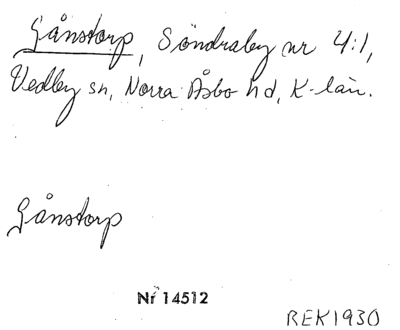 Gånstorp, Söndraby nr 4:1,
Vedby sn, Norra Åsbo hd, K-län.
Gånstorp
Nr 14512
REK1930